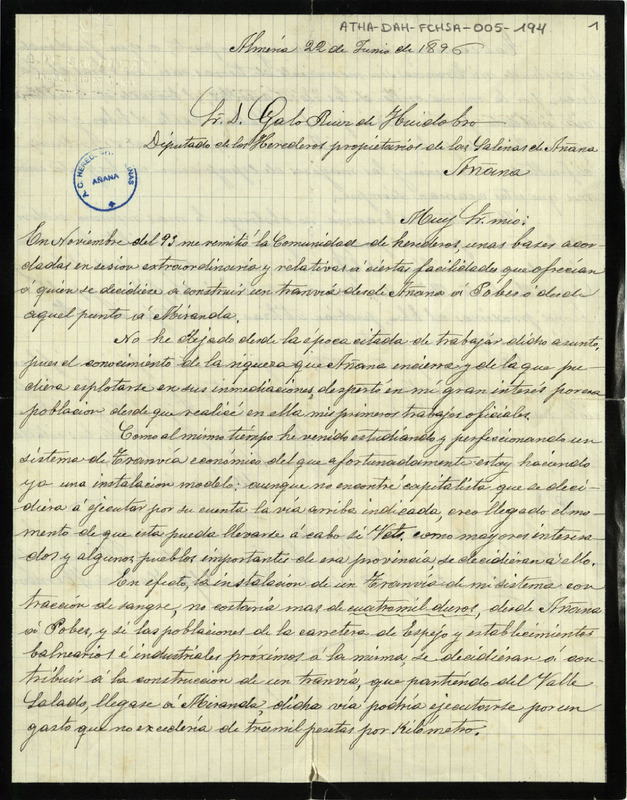 ATHA-DAH-FCHSA-005-194
1
Almería 22 de Junio de 1896
Sr. D. Galo Ruiz de Huidobro
Diputado de los Herederos propietarios de las Salinas de Añana
Añana
AÑANA
Muy Sr. mio:
En Noviembre del 93 me remitió la Comunidad de herederos, unas bases acor-
dadas en sesion extraordinaria y relativas á ciertas facilidades que ofrecian
á quien se decidiese á construir un tranvía desde Añana á Pobes ó desde
aquel punto á Miranda.
No he dejado desde la época citada de trabajar dicho asunto,
pues el conocimiento de la riqueza que Añana encierra y de la que pu-
diera esplotarse en sus inmediaciones, despertó en mi gran interés por esa
poblacion desde que realicé en ella mis primeros trabajos oficiales.
Como al mismo tiempo he venido estudiando y perfeccionando un
sistema de Tranvía económico del que afortunadamente estoy haciendo
ya una instalacion modelo; aunque no encontre capitalista que se deci-
diera á ejecutar por su cuenta la vía arriba indicada, creo llegado el mo-
mento de que esta pueda llevarse á cabo si Vds, como mayores interesa-
dos y algunos pueblos importantes de esa provincia se decidieran á ello.
En efecto, la instalacion de un Tranvía de mi sistema con
traccion de sangre, no costaría mas de cuatro mil duros, desde Añana
á Pobes, y si las poblaciones de la carretera de Espejo y establecimientos
balnearios é industriales próximos á la misma, se decidieran á con-
tribuir á la construccion de un tranvía, que partiendo del Valle
Salado, llegase á Miranda, dicha vía podría ejecutarse por un
gasto que no excedería de tres mil pesetas por Kilómetro.